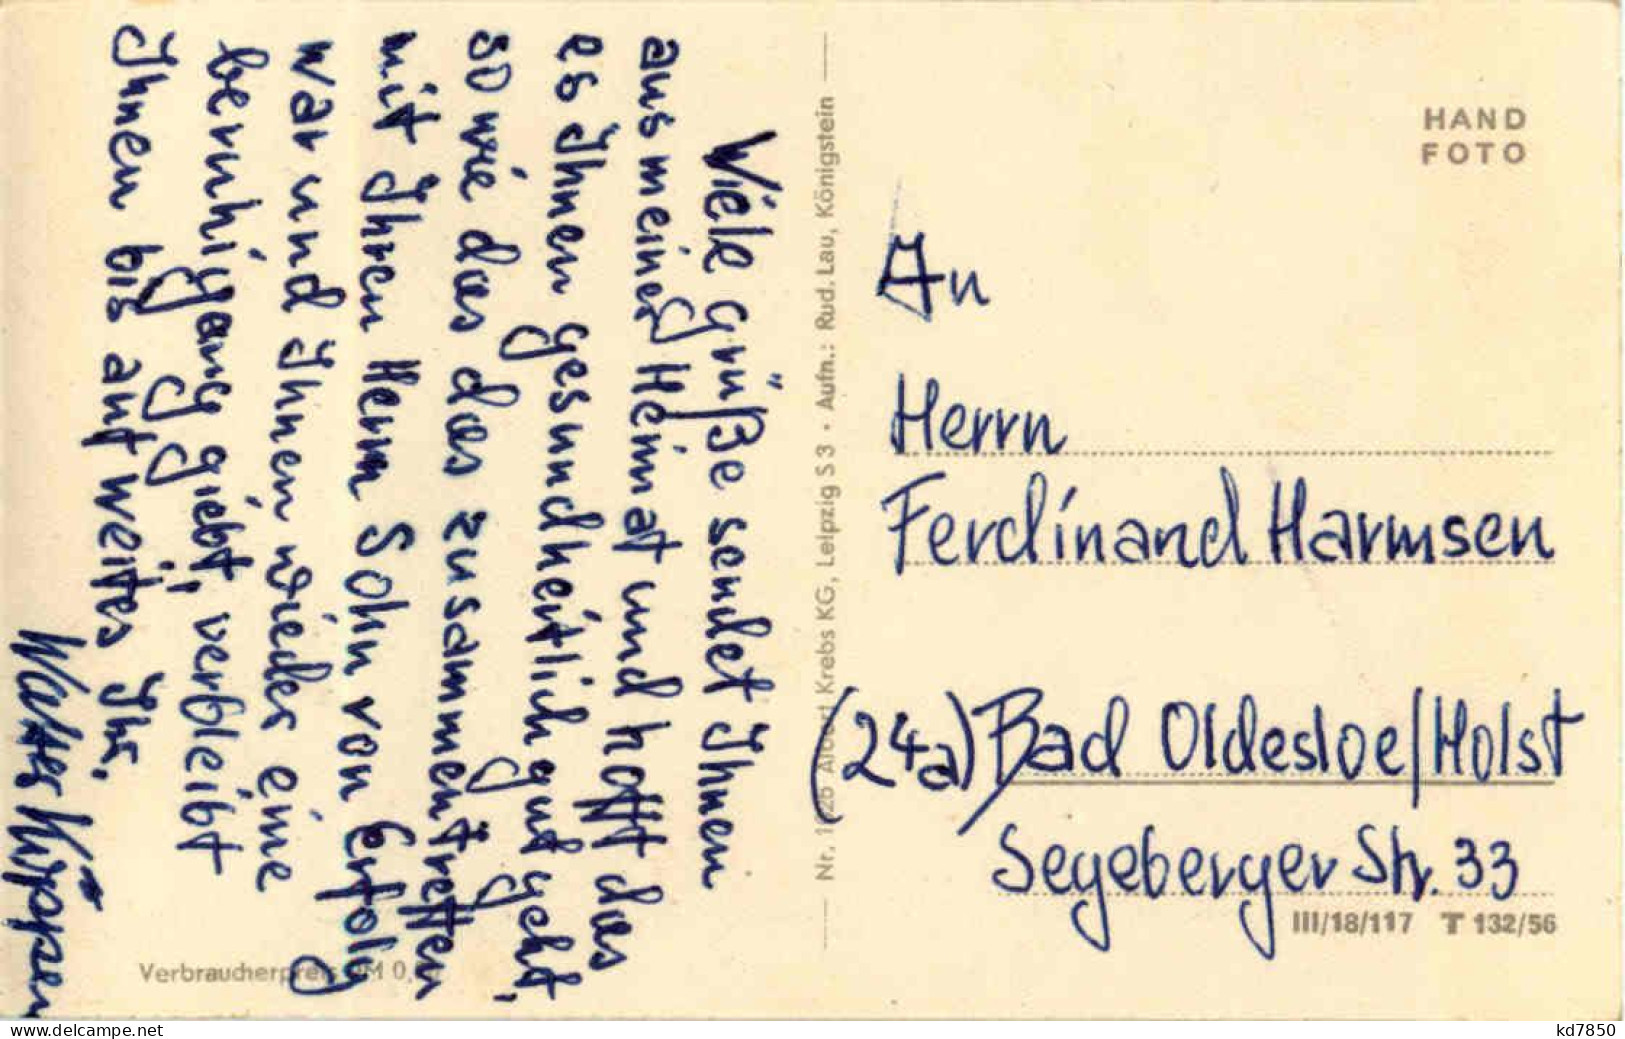 Viele grüße sendet Ihnen
aus meiner Heimat und hofft das
es Ihnen gesundheitlich gut geht,
so wie das das zusammentreffen
mit Ihren Herrn Sohn von Erfolg
war und Ihnen wieder eine
beruhigung giebt, verbleibt
Ihnen bis auf weites Ihr.
Walter
Verbraucherpreis DM 0,
Albert Krebs KG, Leipzig S 3 · Aufn.: Rud. Lau, Königstein
HAND
FOTO
An
Herrn
Ferdinand Harmsen
(24a) Bad Oldesloe/Holst
Segeberger Str. 33
III/18/117 T 132/56
www.delcampe.net
kd7850